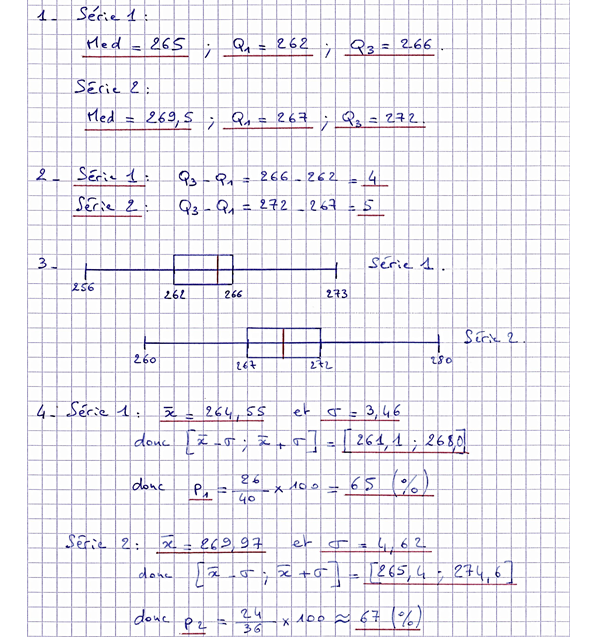 1- Série 1 :
Med = 265 ; Q1 = 262 ; Q3 = 266.
Série 2 :
Med = 269,5 ; Q1 = 267 ; Q3 = 272.
2- Série 1 : Q3 - Q1 = 266 - 262 = 4
Série 2 : Q3 - Q1 = 272 - 267 = 5
3- Série 1.
256 262 266 273
Série 2.
260 267 272 280
4- Série 1 : x̄ = 264,55 et σ = 3,46
donc [x̄ - σ ; x̄ + σ] = [261,1 ; 268,0]
donc P1 = 26/40 × 100 = 65 (%)
Série 2 : x̄ = 269,97 et σ = 4,62
donc [x̄ - σ ; x̄ + σ] = [265,4 ; 274,6]
donc P2 = 24/36 × 100 ≈ 67 (%)